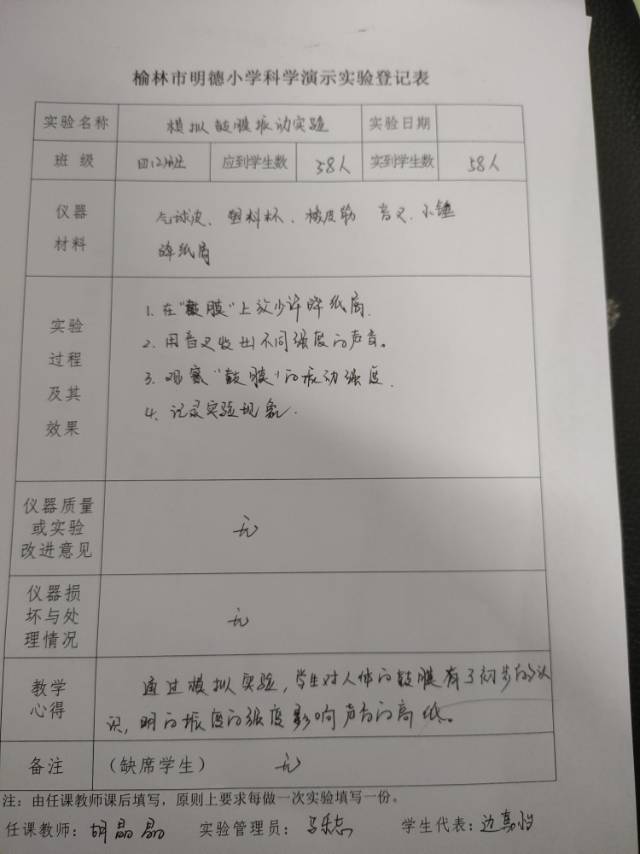 榆林市明德小学科学演示实验登记表
实验名称 模拟鼓膜振动实验 实验日期
班级 四(2)班 应到学生数 58人 实到学生数 58人
仪器材料 气球皮、塑料杯、橡皮筋 音叉、小锤
碎纸屑
实验过程及其效果
1.在"鼓膜"上放少许碎纸屑.
2.用音叉发出不同强度的声音。
3.观察"鼓膜"的振动强度.
4、记录实验现象.
仪器质量或实验改进意见 无
仪器损坏与处理情况 无
教学心得 通过模拟实验,学生对人体的鼓膜有了初步的认
识,明的振度的强度影响声音的高低。
备注 (缺席学生) 无
注:由任课教师课后填写,原则上要求每做一次实验填写一份。
任课教师:胡晶晶 实验管理员: 学生代表:边